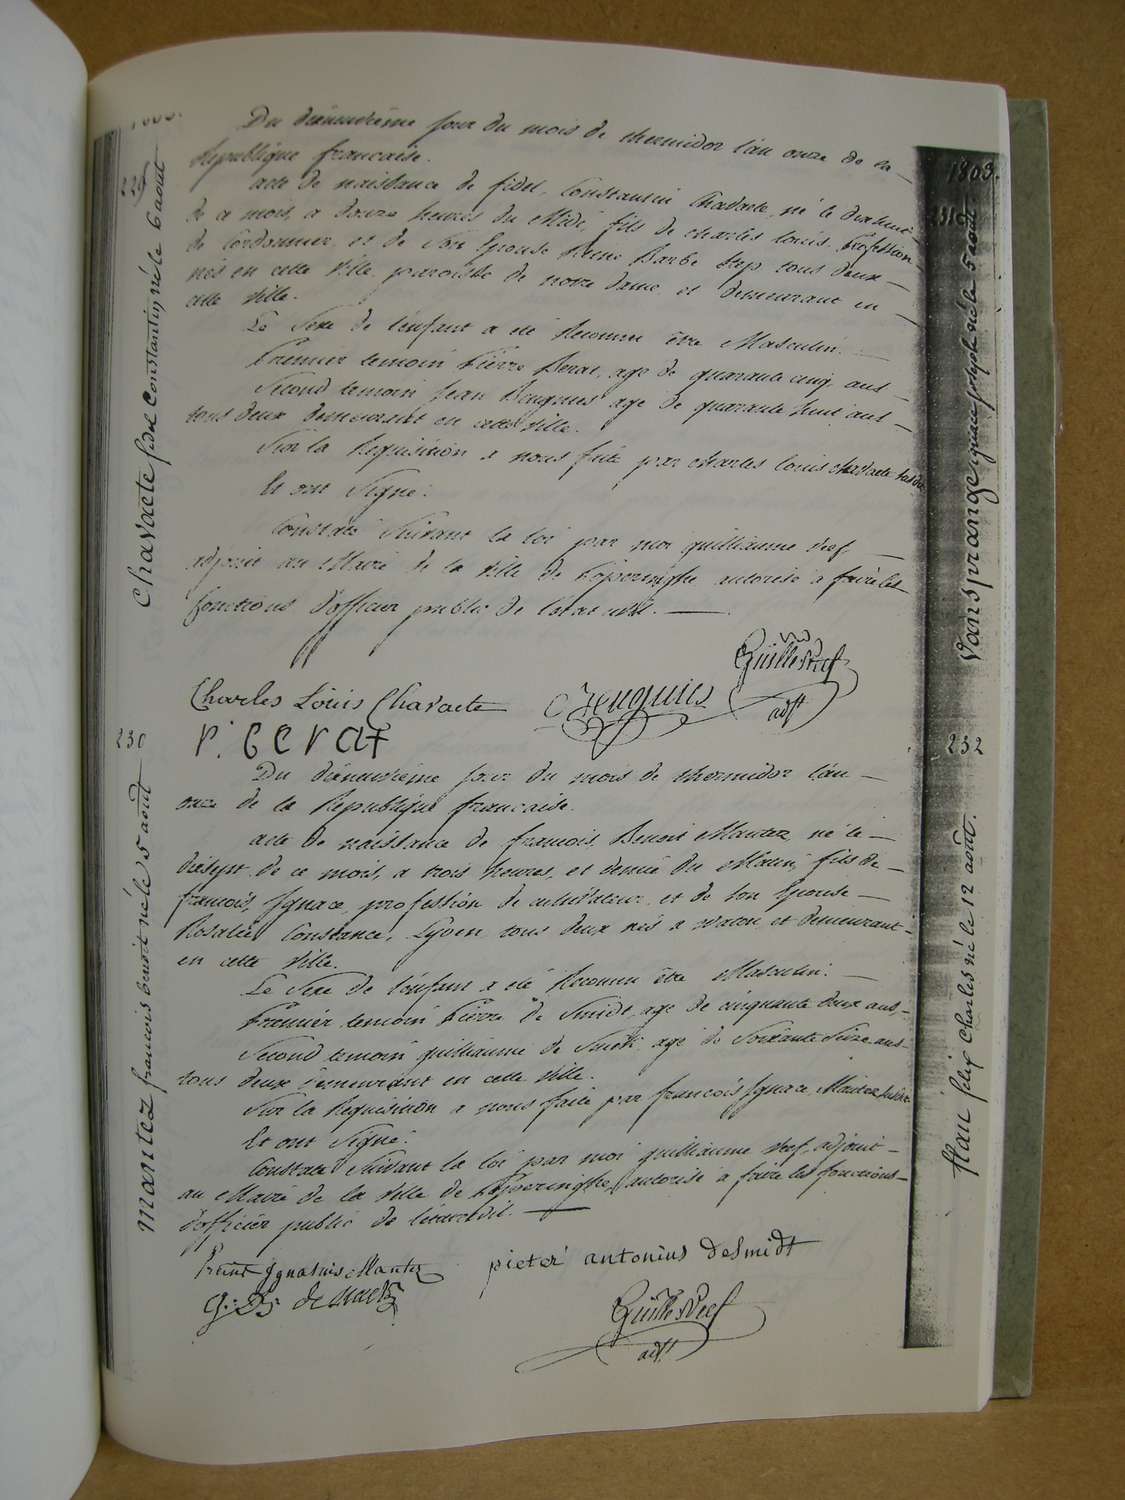 229
Chavaete fidel Constantin né le 6 aout
Du dixneuvième jour du mois de thermidor l'an onze de la
Republique francaise.
acte de naissance de fidel, Constantin Chavaete, né le
de ce mois, a douze heures du Midi, fils de charles louis, profession
de Cordonnier, et de Son Epouse Barbe tous deux
nés en cette Ville, paroisse de notre dame, et demeurant en
cette Ville.
Le Sexe de l'enfant a été Reconnu être Masculin.
Premier temoin Pierre Berat, age de quarante cinq ans
Second temoin Jean Beugnies age de quarante huit ans
tous deux demeurant en cette Ville.
Sur la Requisition a nous faite par charles louis chavaete
Et ont Signé.
Constaté Suivant la loi par moi guilliaume
adjoint au Maire de la Ville de Poperinghe autorisé a faire les
fonctions d'officier public de l'etat civil.
Charles Louis Chavaete
adjt
230
Mantez francois benoit né le 5 août
Du dixneuvième jour du mois de thermidor l'an
onze de la Republique francaise.
acte de naissance de francois, Benoit Mantez, né le
dixsept de ce mois, a trois heures, et demie du Matin, fils de
francois, Ignace, profession de cultivateur et de Son Epouse
Rosalie, Constance, tous deux nés a watou et demeurant
en cette Ville.
Le Sexe de l'enfant a été Reconnu être Masculin.
Premier temoin Pierre de Smidt, age de cinquante deux ans,
Second temoin guilliaume de age de Soixante Seize ans
tous deux demeurant en cette Ville.
Sur la Requisition a nous faite par francois Ignace Mantez
Et ont Signé.
Constaté Suivant la loi par moi guilliaume adjoint
au Maire de la Ville de Poperinghe, autorisé a faire les fonctions
d'officier public de l'etat civil.
Ignatius Mantez pieter antonius deSmidt
adjt
1803.
231
Vansprange ignace joseph né le 5 aout
232
flau felix Charles né le 12 août.